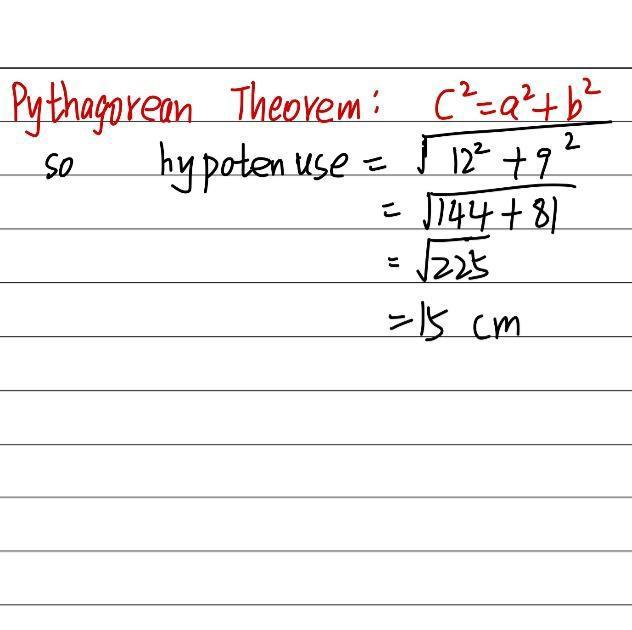 Pythagorean Theorem: C²=a²+b²
so hypotenuse = √12² + 9²
= √144 + 81
= √225
=15 cm